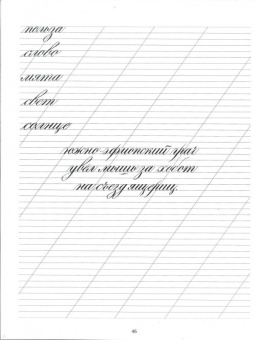 польза
слово
мята
свет
солнце
южно-эфиопский грач
увёл мышь за хобот
на съезд ящериц.
46